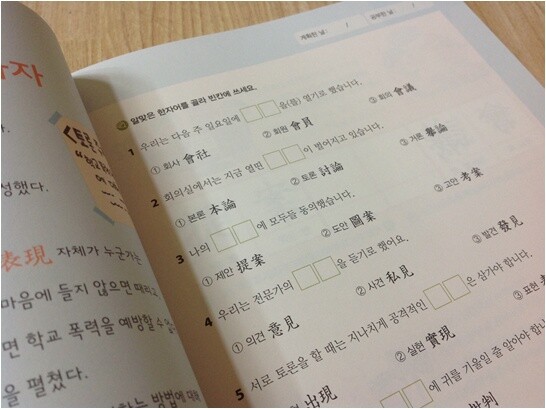 아자
<토론
성했다.
表現 자체가 누군가는
마음에 들지 않으면 때리고
면 학교 폭력을 예방할 수 있
을 펼쳤다.
하는 방법에 대해
계획한 날 : /
공부한 날 : /
알맞은 한자어를 골라 빈칸에 쓰세요.
1 우리는 다음 주 일요일에 □□을(를) 열기로 했습니다.
① 회사 會社 ② 회원 會員 ③ 회의 會議
2 회의실에서는 지금 열띤 □□이 벌어지고 있습니다.
① 본론 本論 ② 토론 討論 ③ 거론 擧論
3 나의 □□에 모두들 동의했습니다.
① 제안 提案 ② 도안 圖案 ③ 고안 考案
4 우리는 전문가의 □□을 듣기로 했어요.
① 의견 意見 ② 사견 私見 ③ 발견 發見
5 서로 토론을 할 때는 지나치게 공격적인 □□은 삼가야 합니다.
出現 ② 실현 實現 ③ 표현
□□에 귀를 기울일 줄 알아야 합니다
批判